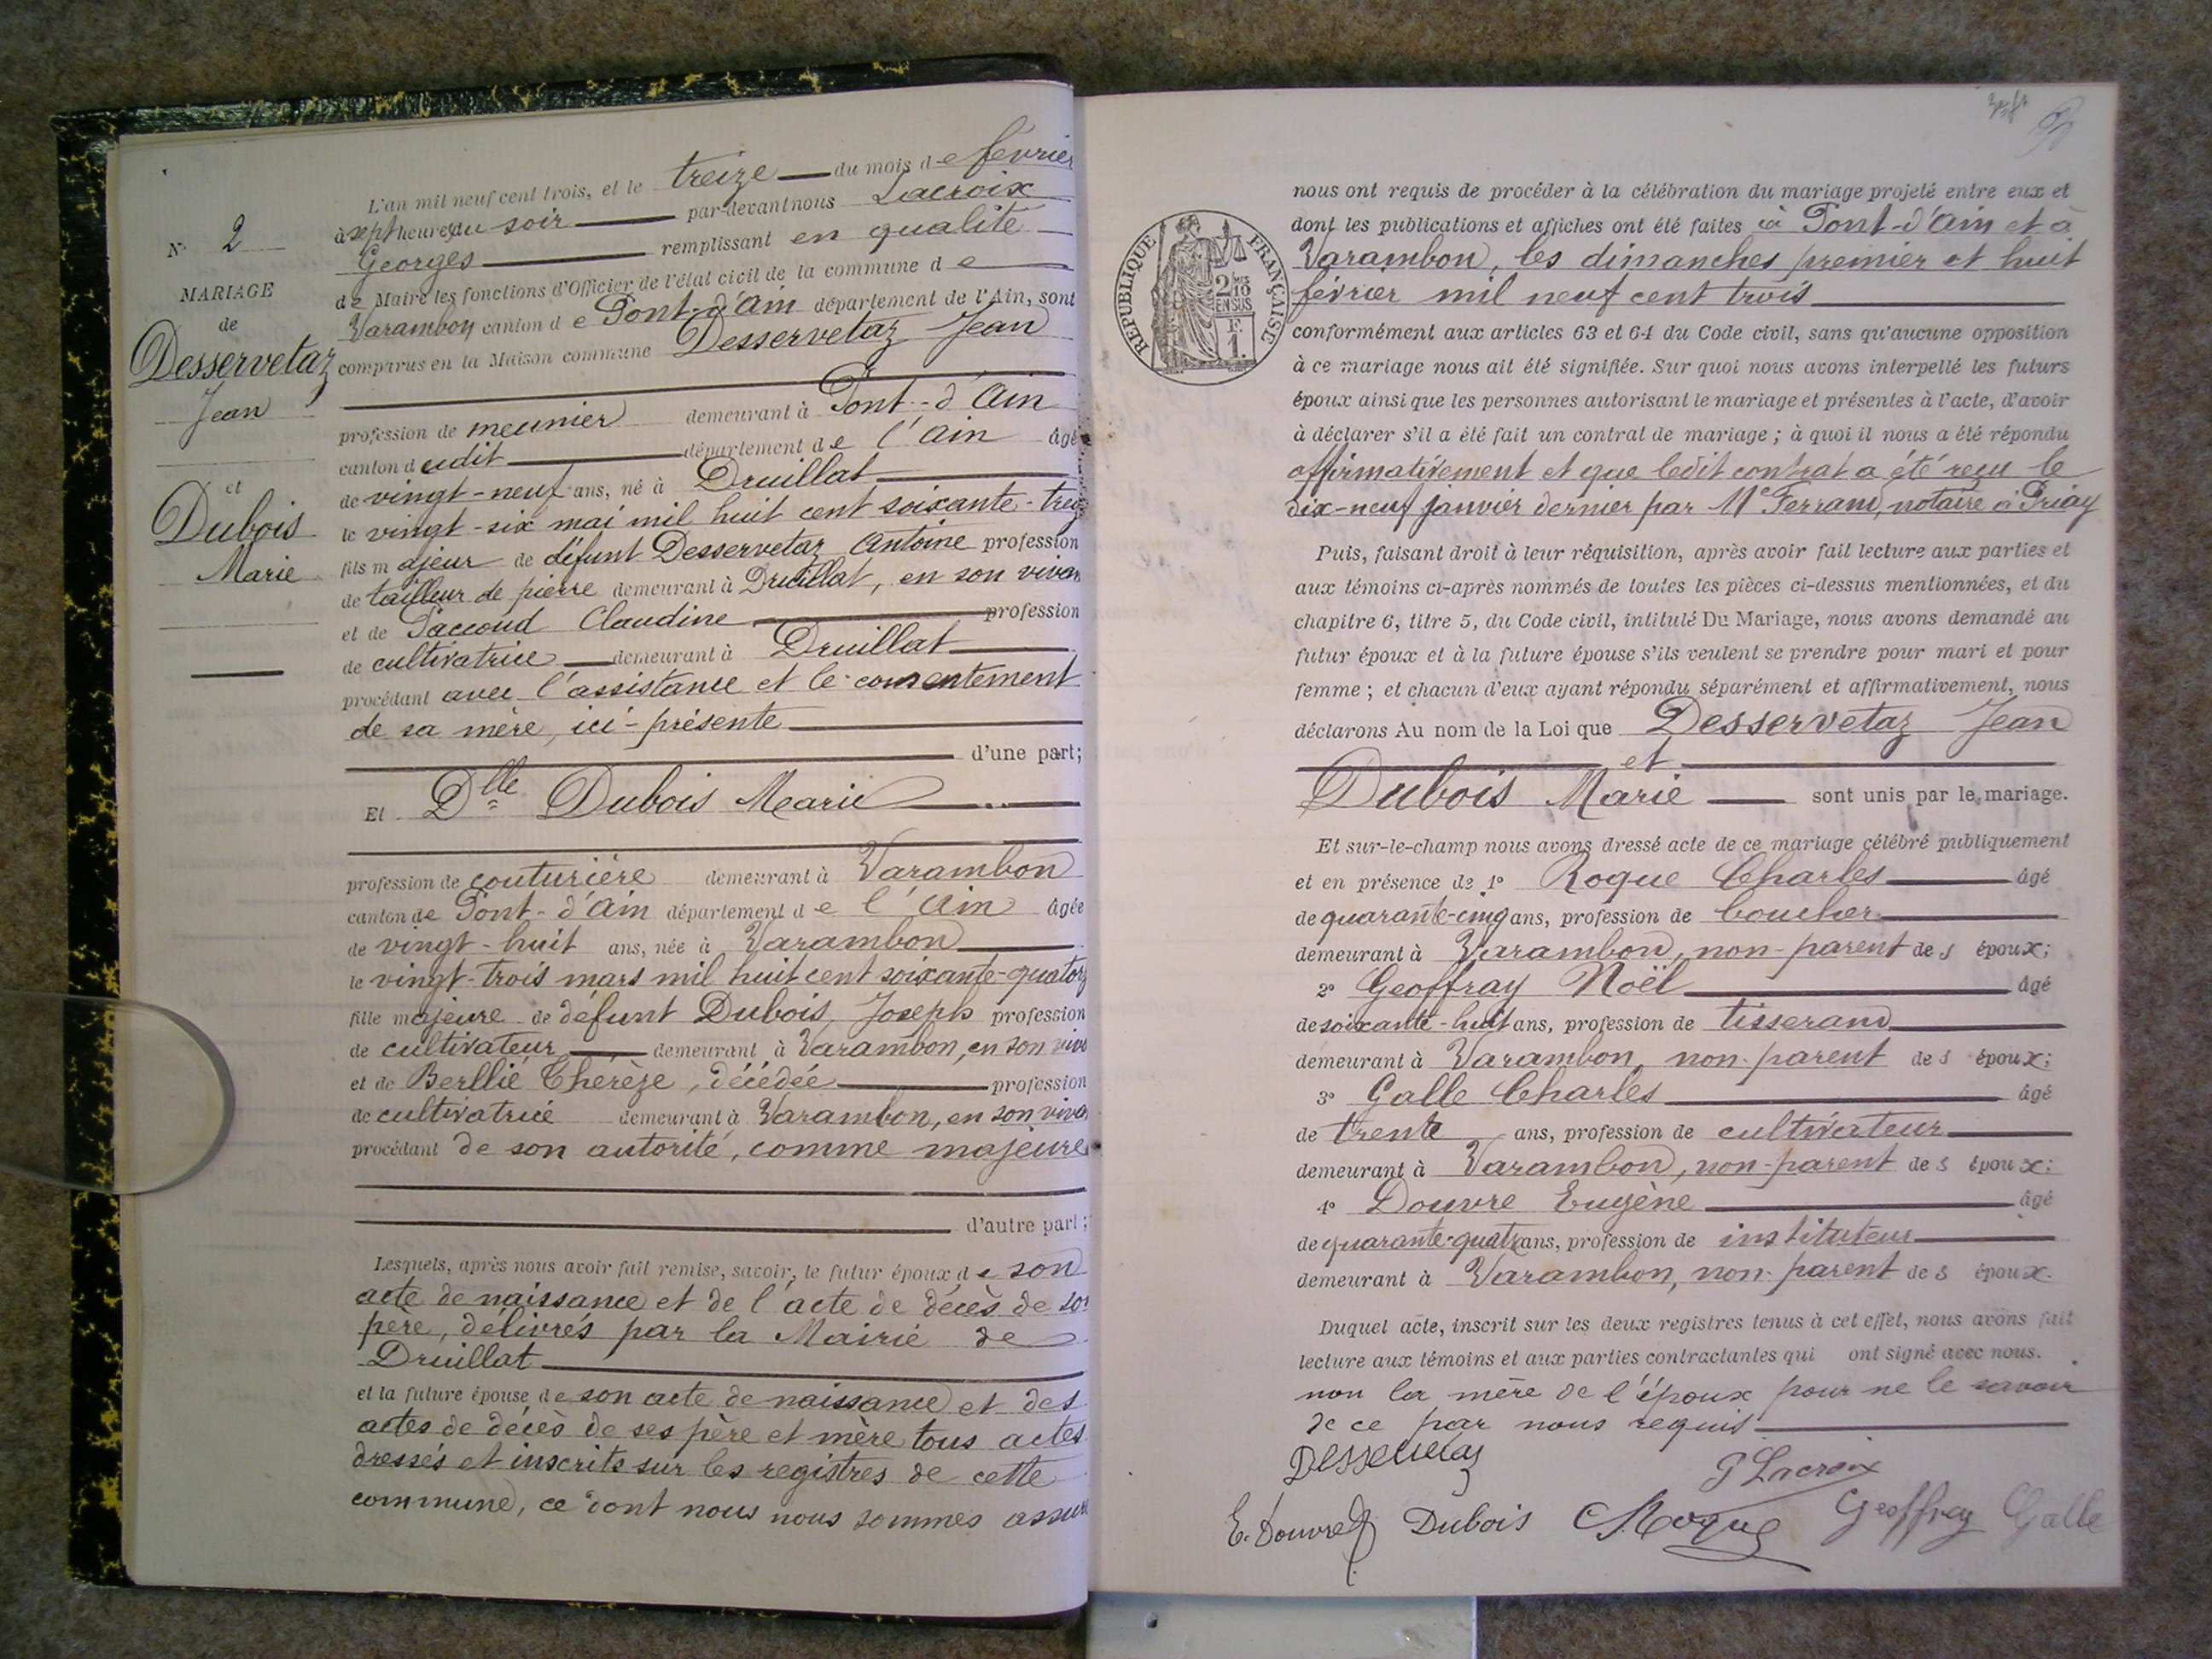 L'an mil neuf cent trois, et le treize du mois de février
à sept heures du soir par-devant nous Lacroix
Georges remplissant en qualité
de Maire les fonctions d'Officier de l'état civil de la commune de
Varambon canton de Pont-d'Ain département de l'Ain, sont
comparus en la Maison commune Desservetaz Jean
profession de meunier demeurant à Pont-d'Ain
canton dudit département de l'Ain âgé
de vingt-neuf ans, né à Druillat
le vingt-six mai mil huit cent soixante-treiz
fils majeur de défunt Desservetaz Antoine profession
de tailleur de pierre demeurant à Druillat, en son vivan
et de Paccoud Claudine profession
de cultivatrice demeurant à Druillat
procédant avec l'assistance et le consentement
de sa mère, ici-présente
d'une part;
Et Dlle Dubois Marie
profession de couturière demeurant à Varambon
canton de Pont-d'Ain département de l'Ain âgée
de vingt-huit ans, née à Varambon
le vingt-trois mars mil huit cent soixante-quatorz
fille majeure de défunt Dubois Joseph profession
de cultivateur demeurant à Varambon, en son viva
et de Berllié Thérèze, décédée profession
de cultivatrice demeurant à Varambon, en son viva
procédant de son autorité, comme majeure
d'autre part;
Lesquels, après nous avoir fait remise, savoir, le futur époux de son
acte de naissance et de l'acte de décès de son
père, délivrés par la Mairie de
Druillat
et la future épouse de son acte de naissance et des
actes de décès de ses père et mère tous actes
dressés et inscrits sur les registres de cette
commune, ce dont nous nous sommes assuré
N° 2
MARIAGE
de
Desservetaz
Jean
et
Dubois
Marie
nous ont requis de procéder à la célébration du mariage projeté entre eux et
dont les publications et affiches ont été faites à Pont-d'Ain et à
Varambon, les dimanches premier et huit
février mil neuf cent trois
conformément aux articles 63 et 64 du Code civil, sans qu'aucune opposition
à ce mariage nous ait été signifiée. Sur quoi nous avons interpellé les futurs
époux ainsi que les personnes autorisant le mariage et présentes à l'acte, d'avoir
à déclarer s'il a été fait un contrat de mariage; à quoi il nous a été répondu
affirmativement et que ledit contrat a été reçu le
dix-neuf janvier dernier par Me Ferrand, notaire à Priay
Puis, faisant droit à leur réquisition, après avoir fait lecture aux parties et
aux témoins ci-après nommés de toutes les pièces ci-dessus mentionnées, et du
chapitre 6, titre 5, du Code civil, intitulé Du Mariage, nous avons demandé au
futur époux et à la future épouse s'ils veulent se prendre pour mari et pour
femme; et chacun d'eux ayant répondu séparément et affirmativement, nous
déclarons Au nom de la Loi que Desservetaz Jean
et
Dubois Marie sont unis par le mariage.
Et sur-le-champ nous avons dressé acte de ce mariage célébré publiquement
et en présence de 1° Roque Charles âgé
de quarante-cinq ans, profession de boucher
demeurant à Varambon, non-parent des époux;
2° Geoffray Noël âgé
de soixante-huit ans, profession de tisserand
demeurant à Varambon, non-parent des époux;
3° Galle Charles âgé
de trente ans, profession de cultivateur
demeurant à Varambon, non-parent des époux;
4° Douvre Eugène âgé
de quarante-quatre ans, profession de instituteur
demeurant à Varambon, non-parent des époux.
Duquel acte, inscrit sur les deux registres tenus à cet effet, nous avons fait
lecture aux témoins et aux parties contractantes qui ont signé avec nous.
non la mère de l'époux pour ne le savoir
de ce par nous requis
Desservetaz
G Lacroix
E. Douvre Dubois C Roque Geoffray Galle
RÉPUBLIQUE FRANÇAISE
2/10
EN SUS
F.
1.